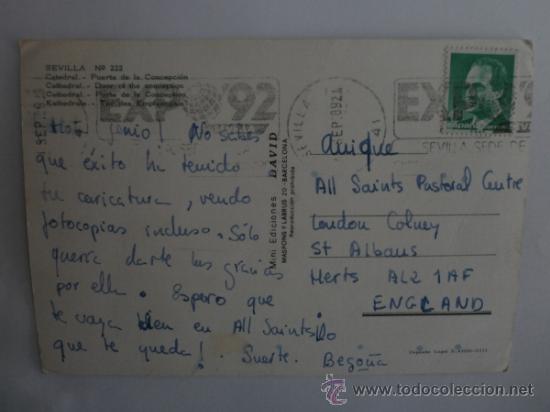 SEVILLA Nº 222
Catedral.- Puerta de la Concepción
Cathedral.- Door of the conception
Cathedral.- Porte de la Conception
Kathedrale.-
EXPO'92
SEVILLA
SEP 0921
41
EXPO
SEVILLA SEDE DE
¡Hola genio! No sabes
que éxito ha tenido
tu caricatura, vendo
fotocopias incluso. Sólo
quería darte las gracias
por ella. Espero que
te vaya bien en All Saints lo
que te queda! Suerte. Begoña
Mini Ediciones DAVID
MASPONS Y LABRUS 20.-BARCELONA
Reproducción prohibida
Quique
All Saints Pastoral Centre
London Colney
St Albans
Herts AL2 1AF
ENGLAND
todocoleccion
http://www.todocoleccion.net